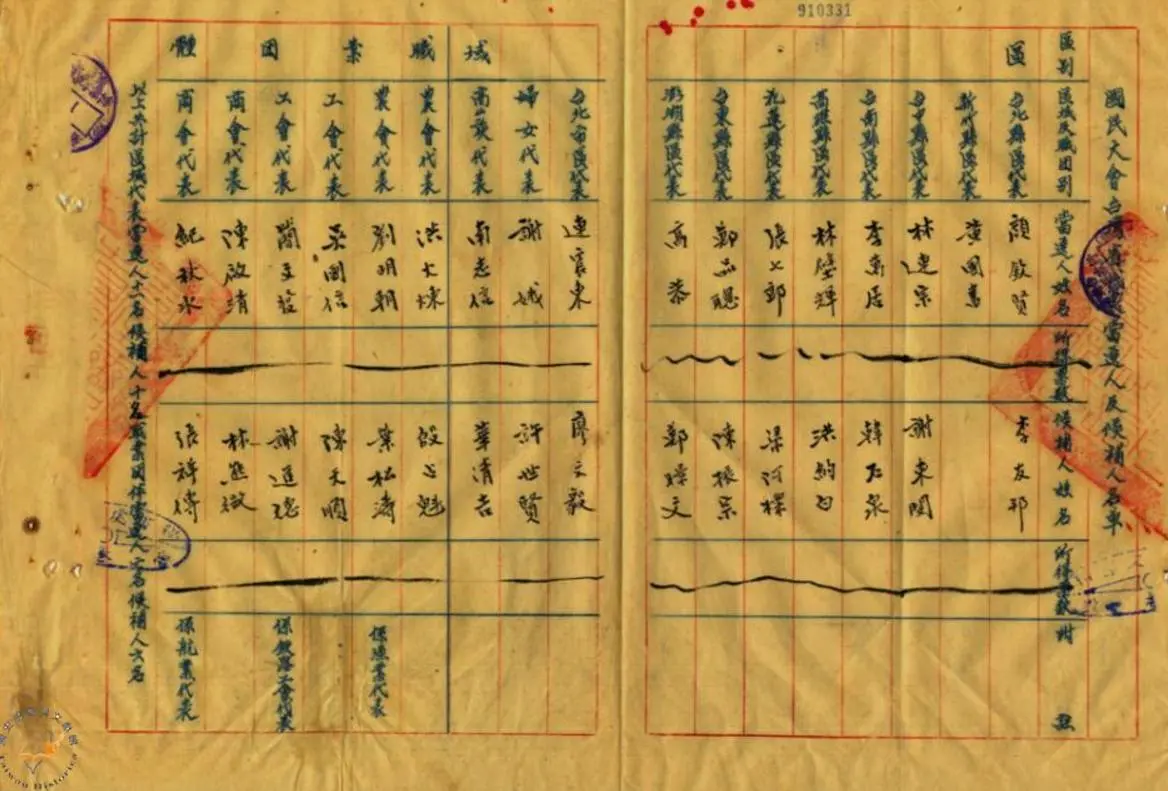 910331
國民大會台灣省當選人及候補人名單
區別 區域及職團別 當選人姓名 所得票數 候補人姓名 所得票數 附註
區 台北縣區代表 顏欽賢 李友邦
新竹縣區代表 黃國書
台中縣區代表 林連宗 謝東閔
台南縣區代表 李萬居 韓石泉
高雄縣區代表 林璧輝 洪約白
花蓮縣區代表 張七郎 梁阿標
台東縣區代表 鄭品聰 陳振宗
澎湖縣區代表 高恭 鄭文
台北市區代表 連震東 廖文毅
婦女代表 謝娥 許世賢
域 高山族代表 南志信 華清吉
職 農會代表 洪火煉 殷占魁
農會代表 劉明朝 葉松濤 係漁業代表
業 工會代表 吳國信 陳天順
團 工會代表 簡文發 謝進 係鐵路工會代表
商會代表 陳啟清 林熊徵
體 商會代表 紀秋水 張祥傳 係航業代表
以上共計區域代表當選人十一名候補人十名職業團体當選人六名候補人六名
Taiwan Historica